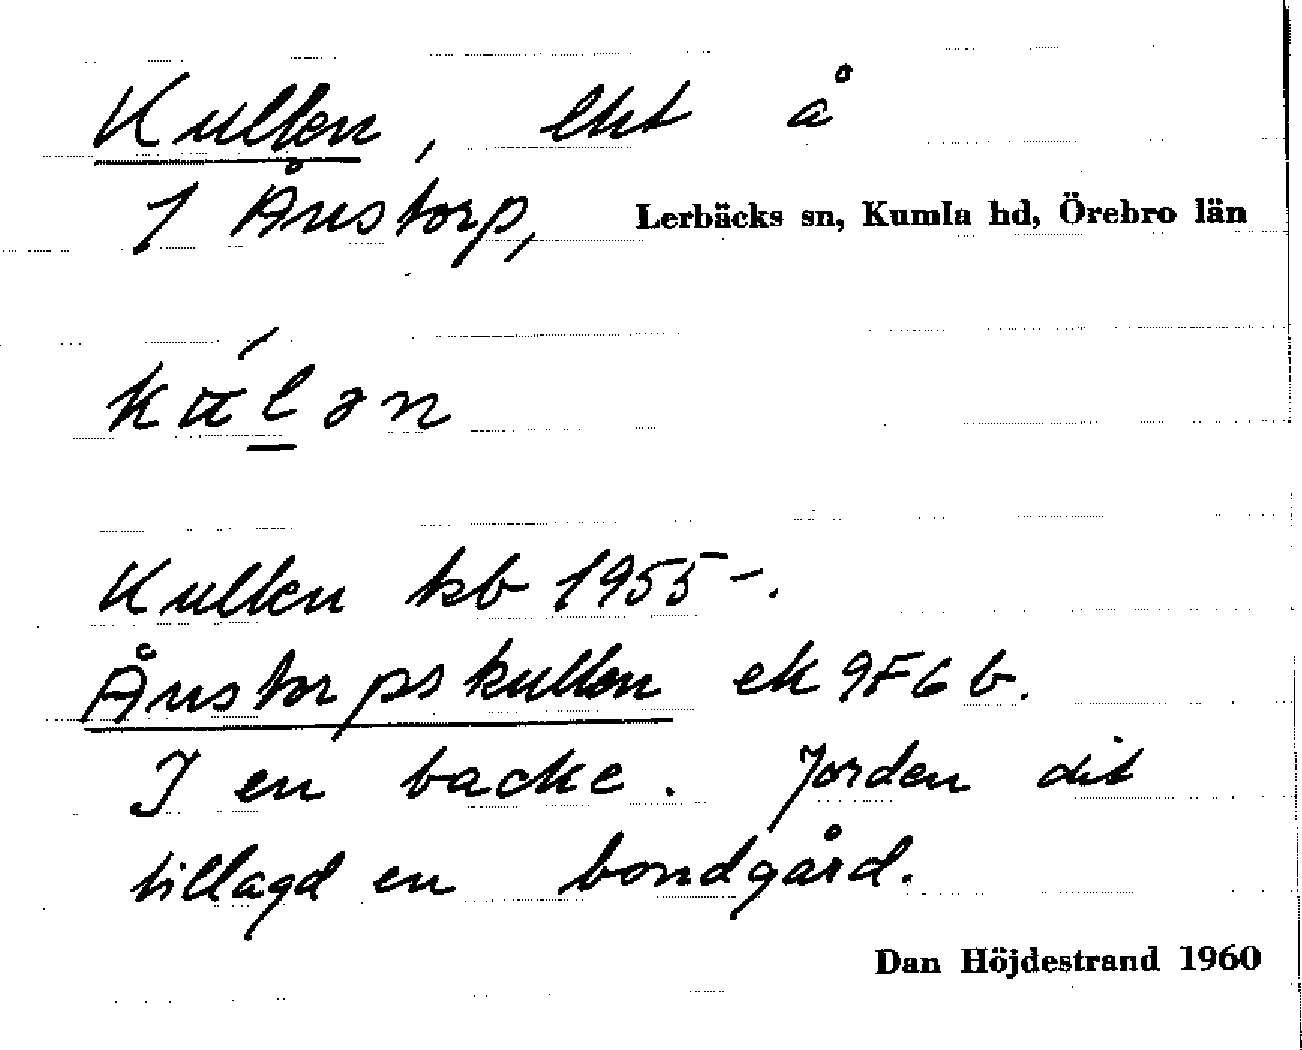 Kullen, lht å
1 Ånstorp, Lerbäcks sn, Kumla hd, Örebro län
kɷ́lən
Kullen kb 1955-.
Ånstorpskullen ek 9F6b.
I en backe. Jorden dit
tillagd en bondgård.
Dan Höjdestrand 1960